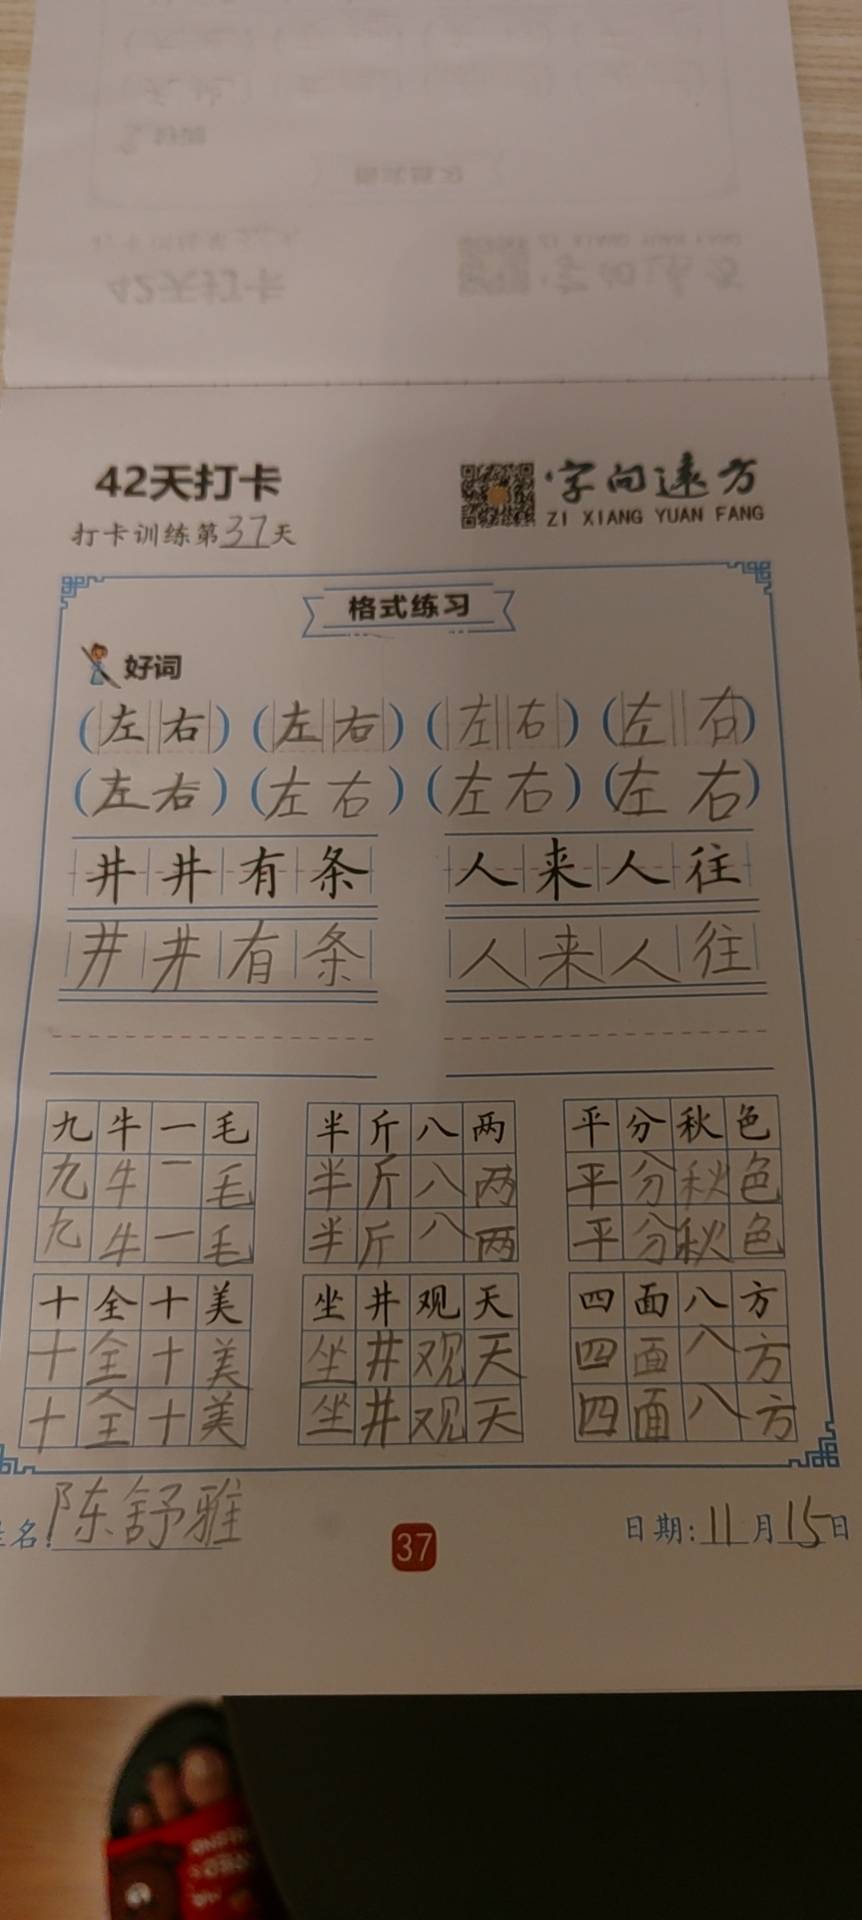 42天打卡
字向远方
打卡训练第37天
ZI XIANG YUAN FANG
格式练习
好词
(左右) (左右) (左右) (左右)
(左右) (左右) (左右) (左右)
井井有条 人来人往
井井有条 人来人往
九牛一毛 半斤八两 平分秋色
九牛一毛 半斤八两 平分秋色
九牛一毛 半斤八两 平分秋色
十全十美 坐井观天 四面八方
十全十美 坐井观天 四面八方
十全十美 坐井观天 四面八方
姓名:陈舒雅 日期:11月15日
37